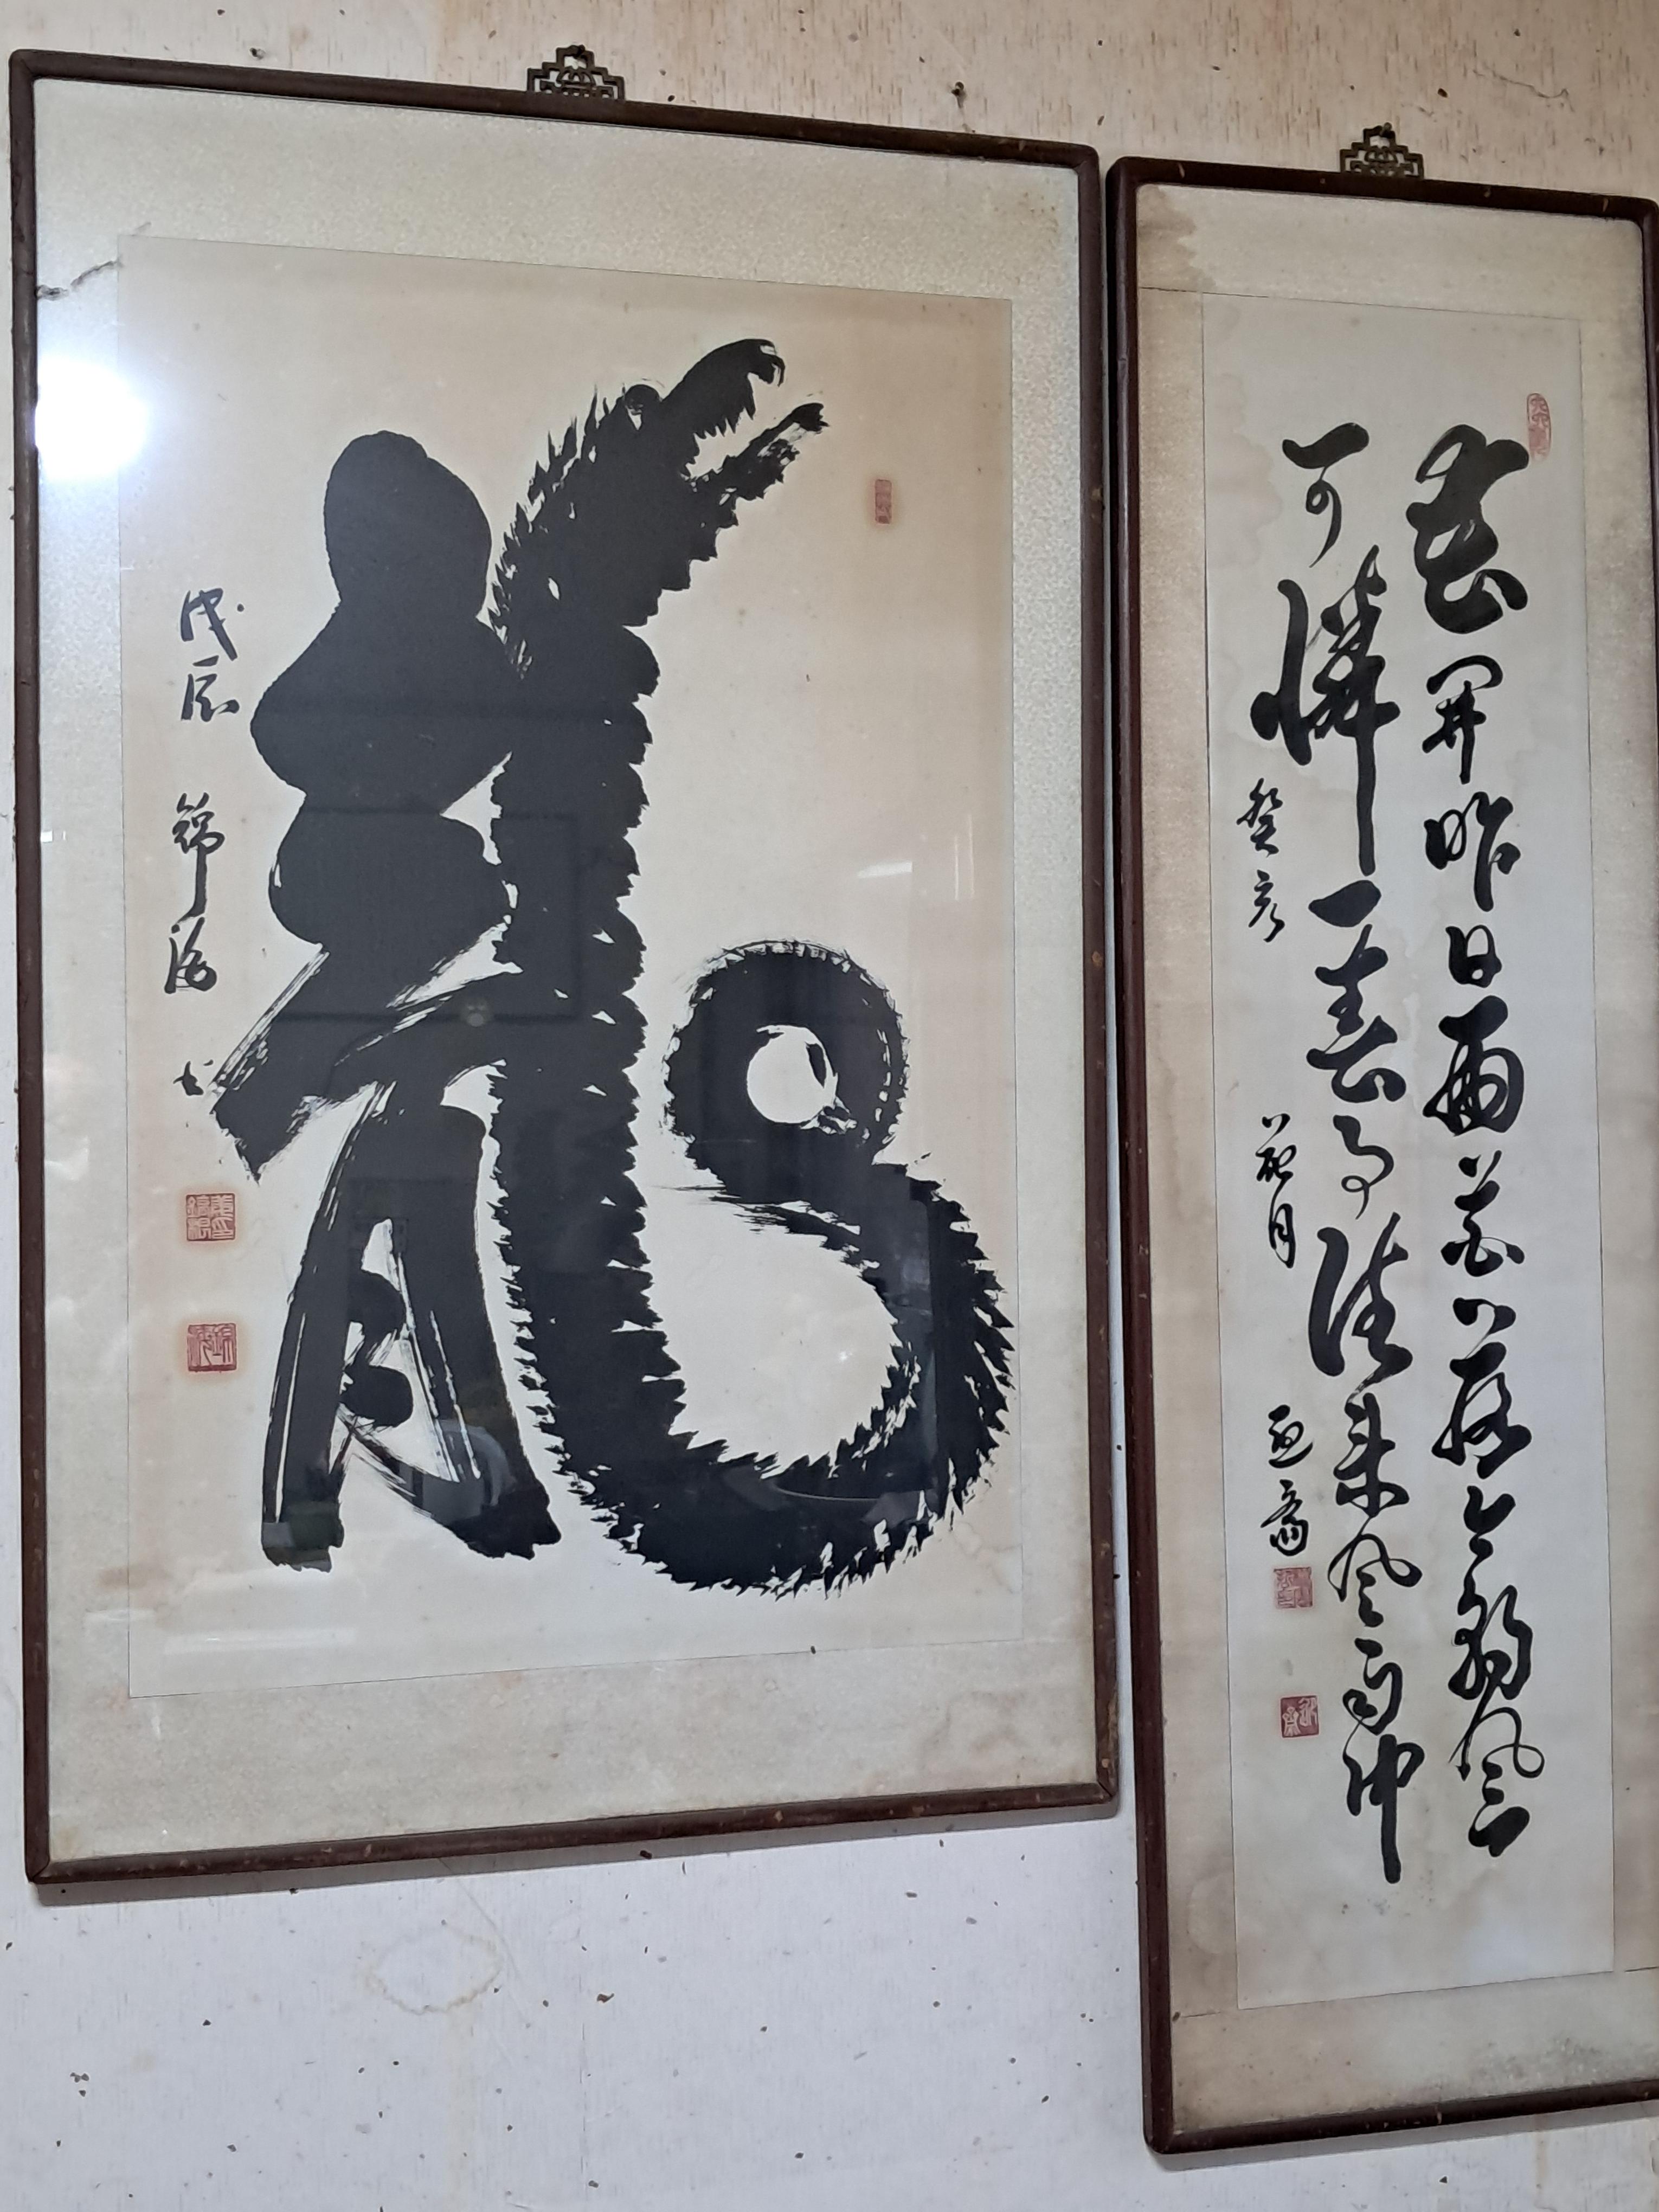 花開昨日雨
花落今朝風
可憐一春事
往來風雨中
癸亥 花月
龍
戊辰 錦海 書